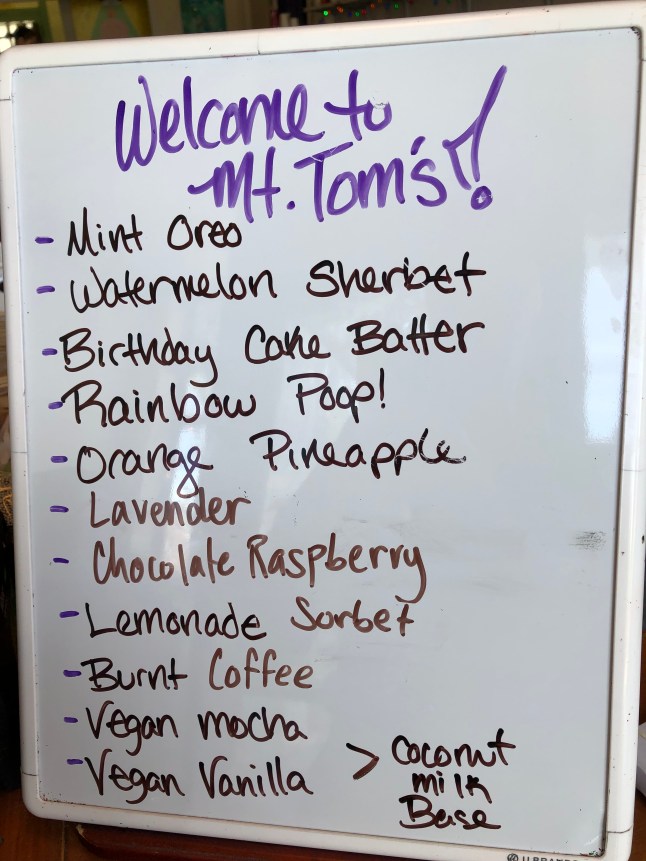 Welcome to
Mt. Tom's!
- Mint Oreo
- Watermelon Sherbet
- Birthday Cake Batter
- Rainbow Poop!
- Orange Pineapple
- Lavender
- Chocolate Raspberry
- Lemonade Sorbet
- Burnt Coffee
- Vegan mocha
- Vegan Vanilla
> Coconut
milk
Base